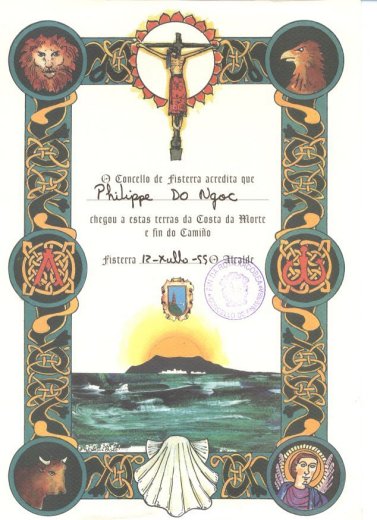 O Concello de Fisterra acredita que
Philippe Do Ngoc
chegou a estas terras da Costa da Morte
e fin do Camiño
Fisterra 12-Xullo-99 O Alcalde